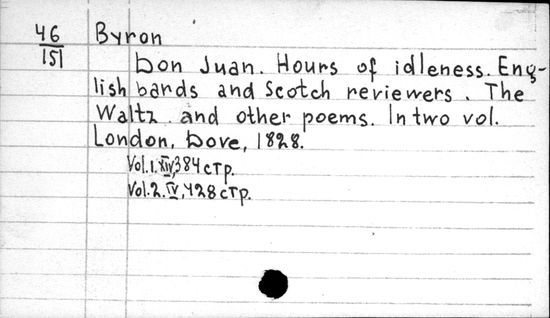 46 Byron
151
Don Juan. Hours of idleness. Eng-
lish bards and Scotch reviewers. The
Waltz and other poems. In two vol.
London, Dove, 1828.
Vol.1. XIV, 384 стр.
Vol.2. IV, 428 стр.